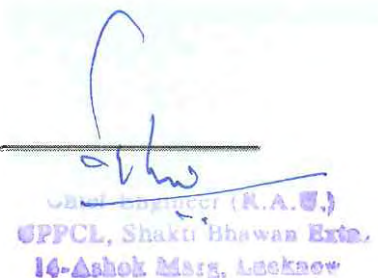 Chief Engineer (R.A.U.)
UPPCL, Shakti Bhawan Extn.
14-Ashok Marg, Lucknow